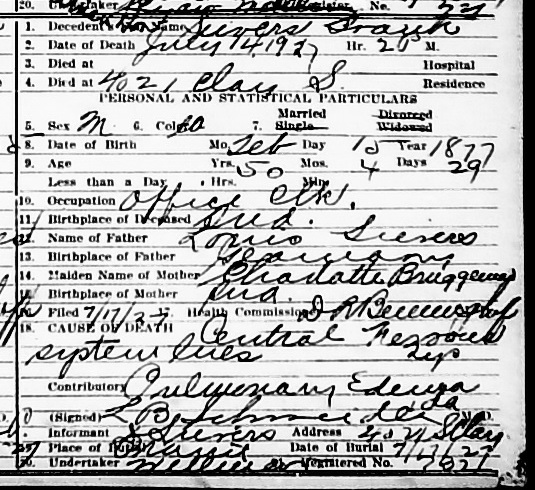 20. Undertaker Registrar No.
1. Decedent's Name Sievers Frank
2. Date of Death July 14, 1927 Hr. 20 M.
3. Died at Hospital
4. Died at 4021 Clay S. Residence
PERSONAL AND STATISTICAL PARTICULARS
5. Sex M 6. Color 7. Married Single Divorced Widowed
8. Date of Birth Mo. Feb Day 15 Year 1877
9. Age Yrs. 50 Mos. 4 Days 29
Less than a Day Hrs. Min.
10. Occupation Office Clk.
11. Birthplace of Deceased Ind.
12. Name of Father Louis Sievers
13. Birthplace of Father Germany
14. Maiden Name of Mother Charlotte Bruggeman
Birthplace of Mother Ind.
Filed 7/17/27 17. Health Commissioner
18. CAUSE OF DEATH Central Nervous
system lues
Contributory Pulmonary Edema
(Signed) M.D.
Informant Sievers Address 4021 S Clay
Place of Burial Date of Burial 7/17/27
20. Undertaker Registered No.